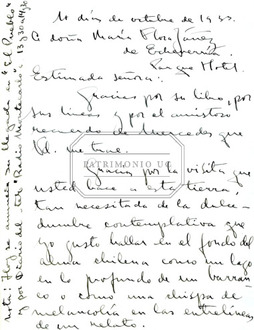 10 días de octubre de 1950.
A doña María Flora Yáñez
de Echeverría.
Parque Hotel.
Estimada señora:
Gracias por su libro, por
sus líneas y por el amistoso
recuerdo de Mercedes que
Ud. me trae.
Gracias por la visita que
usted hace a esta tierra,
tan necesitada de la dulce-
dumbre contemplativa que
yo gusto hallar en el fondo del
alma chilena como un lago
en lo profundo de un barran-
co o como una chispa de
melancolía en las entrelíneas
de un relato.
Nota: Hoy se anuncia su llegada en "El Pueblo"
y por Diario del Aire Radio Montecarlo
PATRIMONIO UC